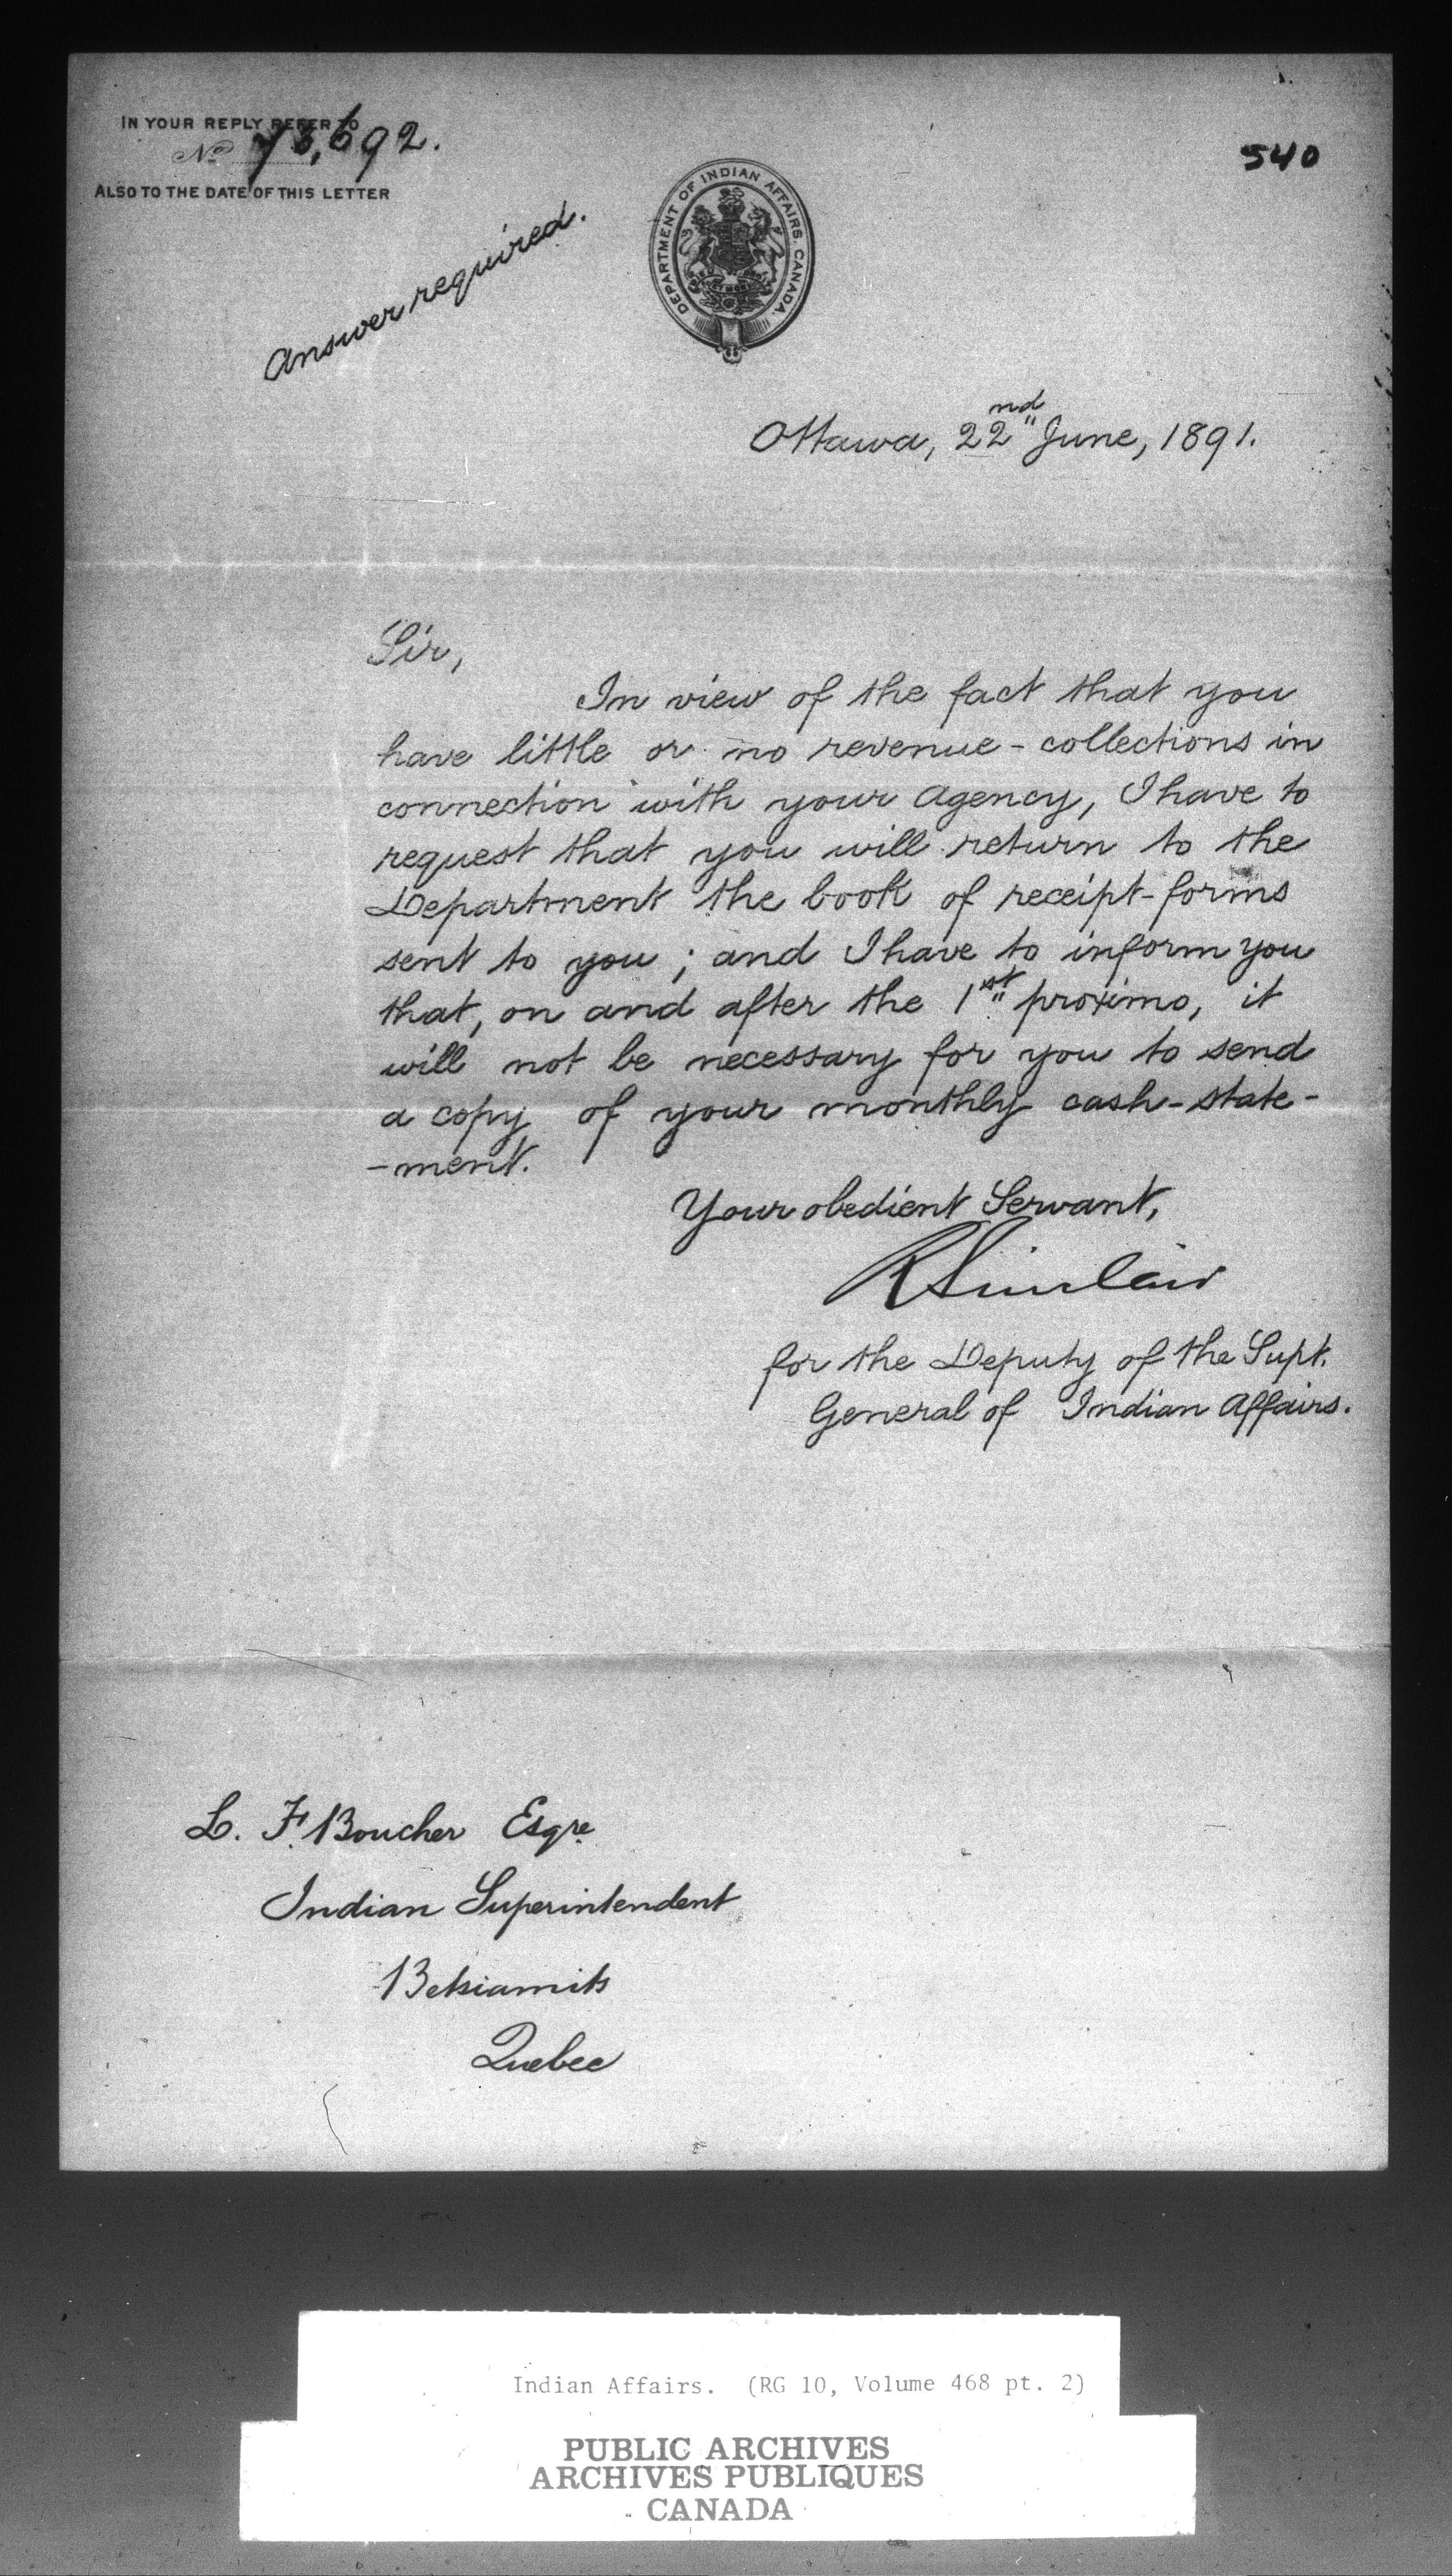 IN YOUR REPLY REFER TO
No 73,692.
ALSO TO THE DATE OF THIS LETTER
540
Answer required.
DEPARTMENT OF INDIAN AFFAIRS. CANADA.
Ottawa, 22nd June, 1891.
Sir,
In view of the fact that you
have little or no revenue-collections in
connection with your Agency, I have to
request that you will return to the
Department the book of receipt-forms
sent to you; and I have to inform you
that, on and after the 1st proximo, it
will not be necessary for you to send
a copy of your monthly cash-state-
-ment.
Your obedient Servant,
R Sinclair
for the Deputy of the Supt.
General of Indian Affairs.
L. F. Boucher Esqre
Indian Superintendent
Betsiamits
Quebec
Indian Affairs. (RG 10, Volume 468 pt. 2)
PUBLIC ARCHIVES
ARCHIVES PUBLIQUES
CANADA